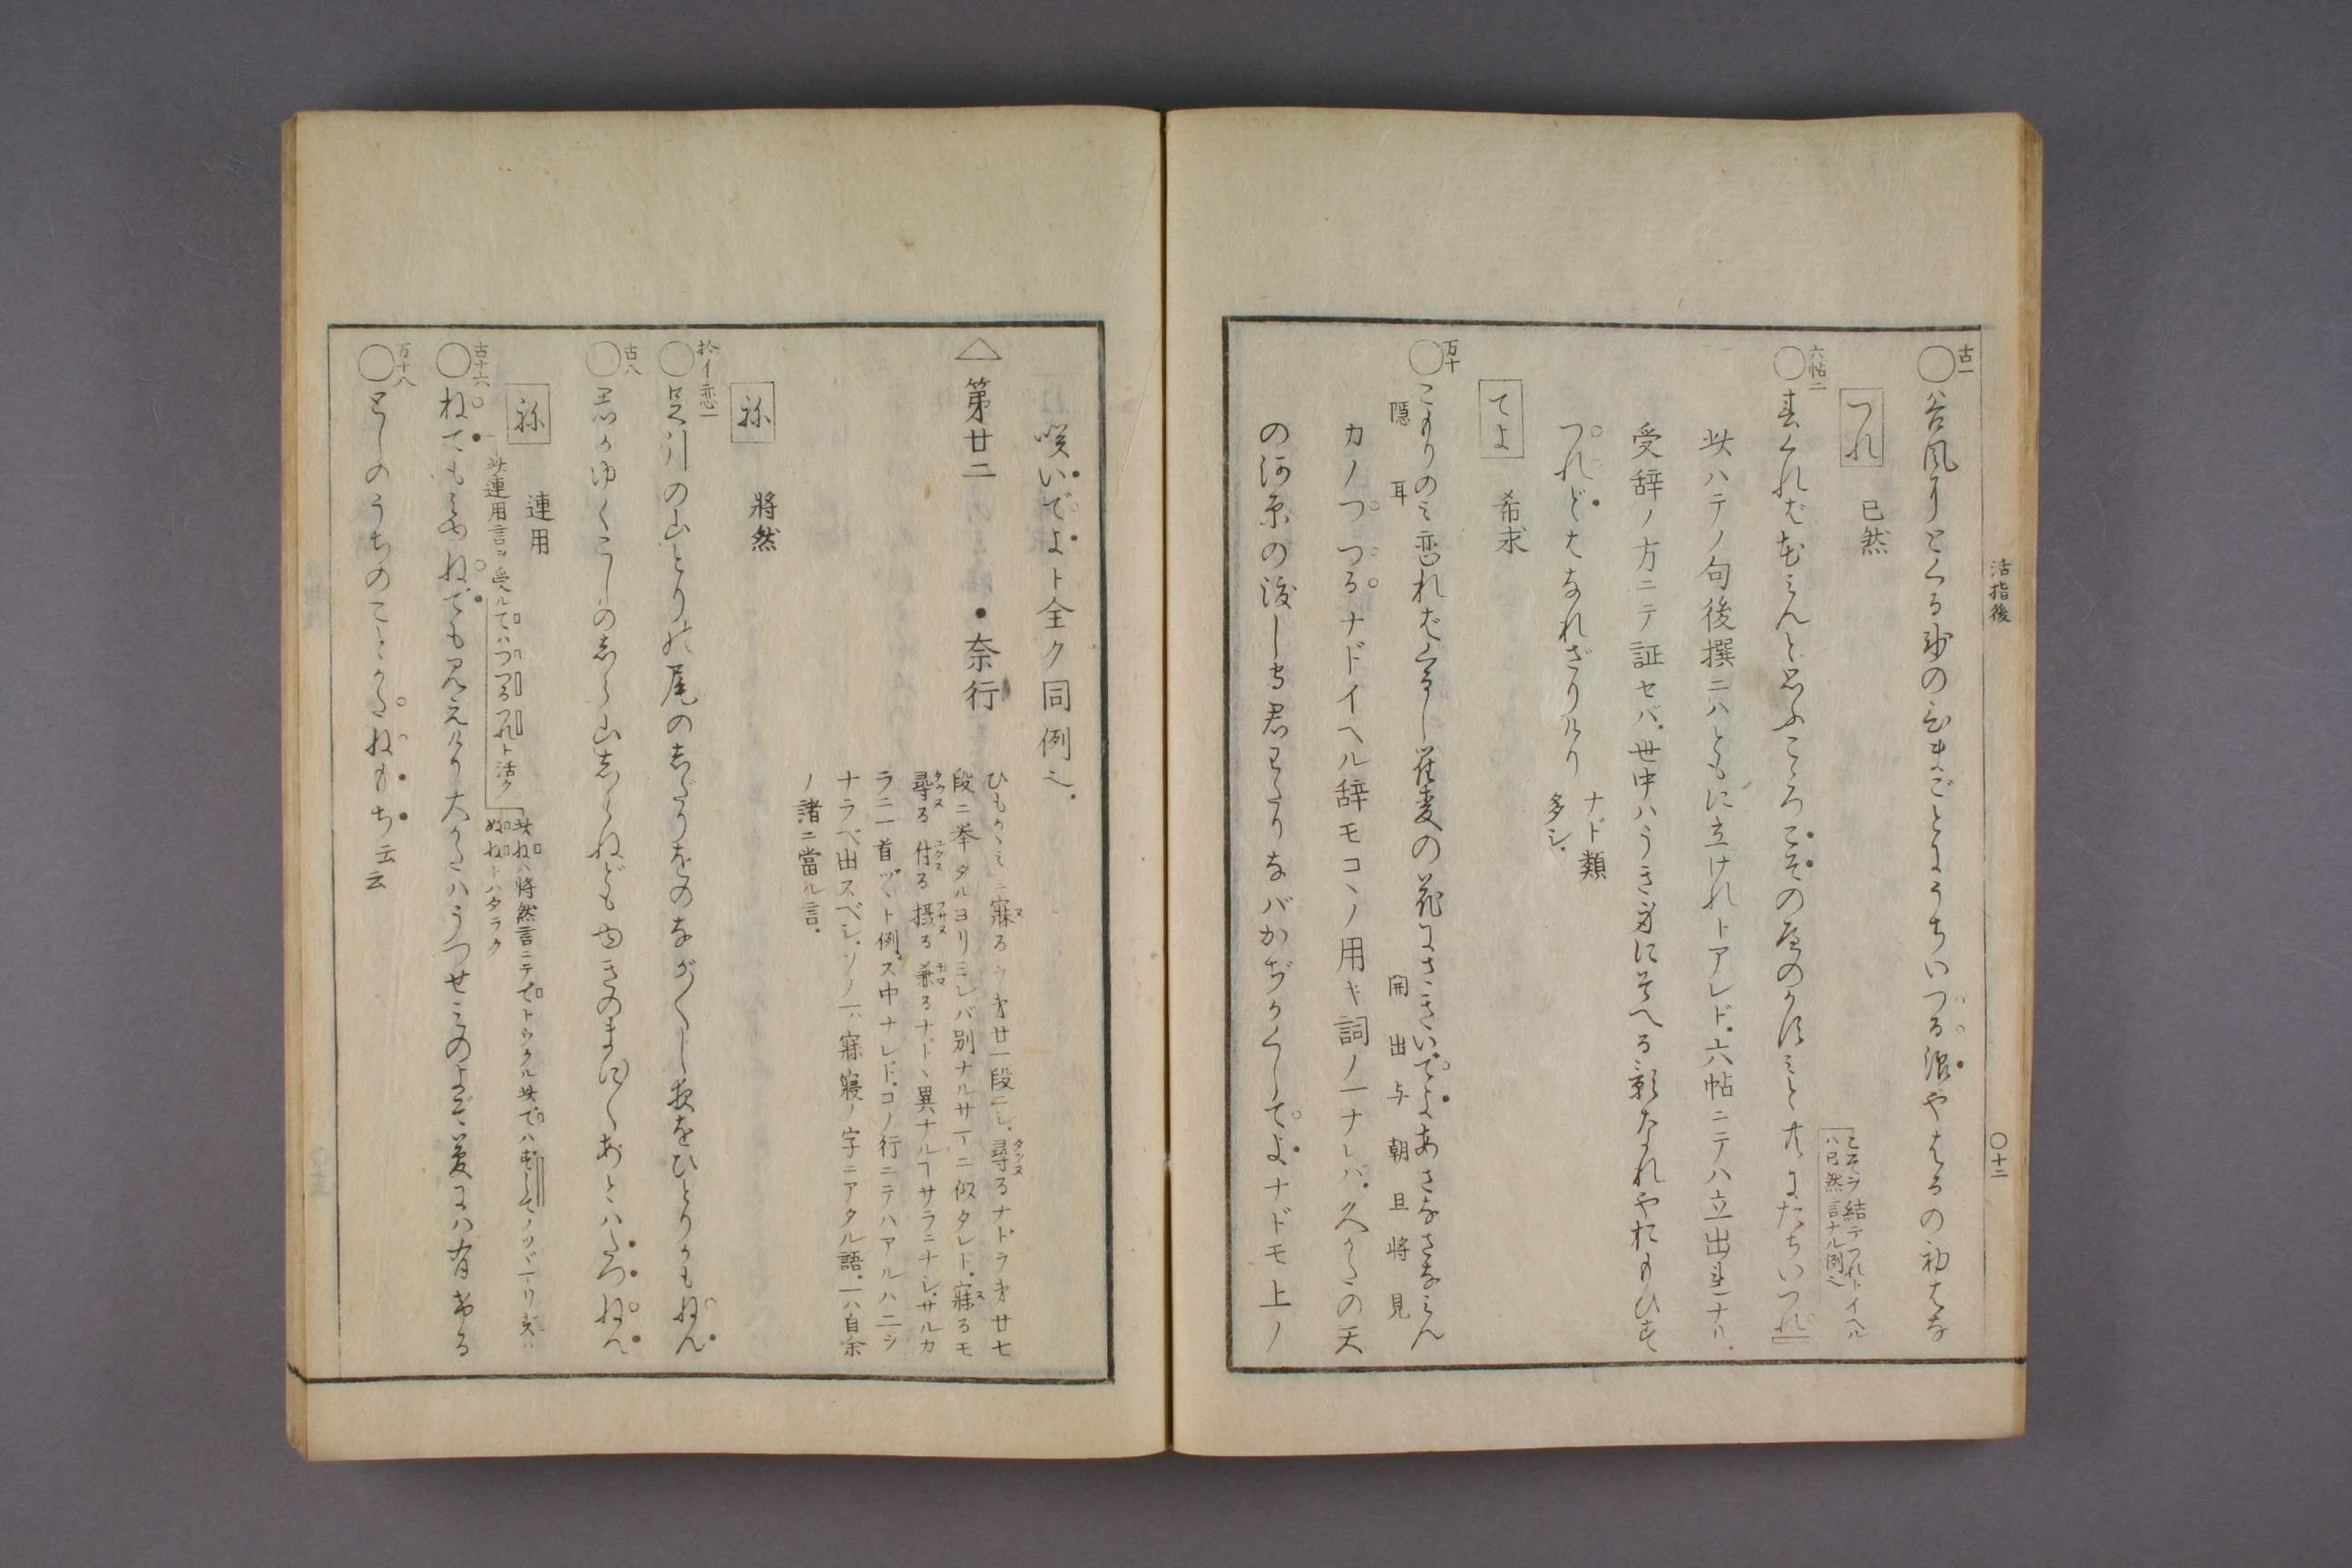 活指後
〇十二
古一
〇谷風にとくる氷のひまごとにうちいつる浪やはるの初はな
つれ 已然
こそヲ結テつれトイヘル
ハ已然言ナル例也
六帖二
〇春くればむもとこそのやとの
此ハテノ句後撰ニハともに立けれトアレド、六帖ニテハ立出
受辞ノ方ニテ証セバ、世中ハうき身にそへる影なれやおもひす
つれどはなれざりけり
ナド類
多シ、
てよ 希求
万十
〇こもりのミ恋ればくるし瞿麦の花にさきいでよあさなさなミん
隠 耳 開 出 与 朝 旦 将 見
カノつつるナドイヘル辞モコヽノ用キ詞ノ一ナレバ、久かたの天
の河原の渡し守君わたりなバかぢかくしてよナドモ上ノ
咲いでよト全ク同例也、
△第廿二 ●奈行
ひもかゝミニ寐るヲ才廿一段ニシ、尋るナドヲ才廿七
段ニ挙タルヨリミレバ別ナルサマニ似タレド、寐るモ
尋る 付る 摂る 兼るナドヽ異ナルヿサラニナシ、サルカ
ラニ一首ヅヽト例ス中ナレド、コノ行ニテハアルハ二シ
ナラベ出スベシ、ソノ一ハ寐寝ノ字ニアタル語、一ハ自余
ノ諸ニ當ル言、
祢 将然
拾イ恋一
〇足引の山とりの尾のしだりをのながながし夜をひとりかもねん
古八
〇思かゆくこしのしら山しらねども雪きのまにまにあとハたづねん
祢 連用
此連用言ヲ受ルてハつつるつれト活ク
此ねハ将然言ニテでトウクル此でハずしてノツヾマリ
ぬねトハタラク
古十六
〇ねても見ゆねでも見えけり大かたハうつせミのよぞ夢にハ有ける
万十八
〇としのうちのことかたねもち云云